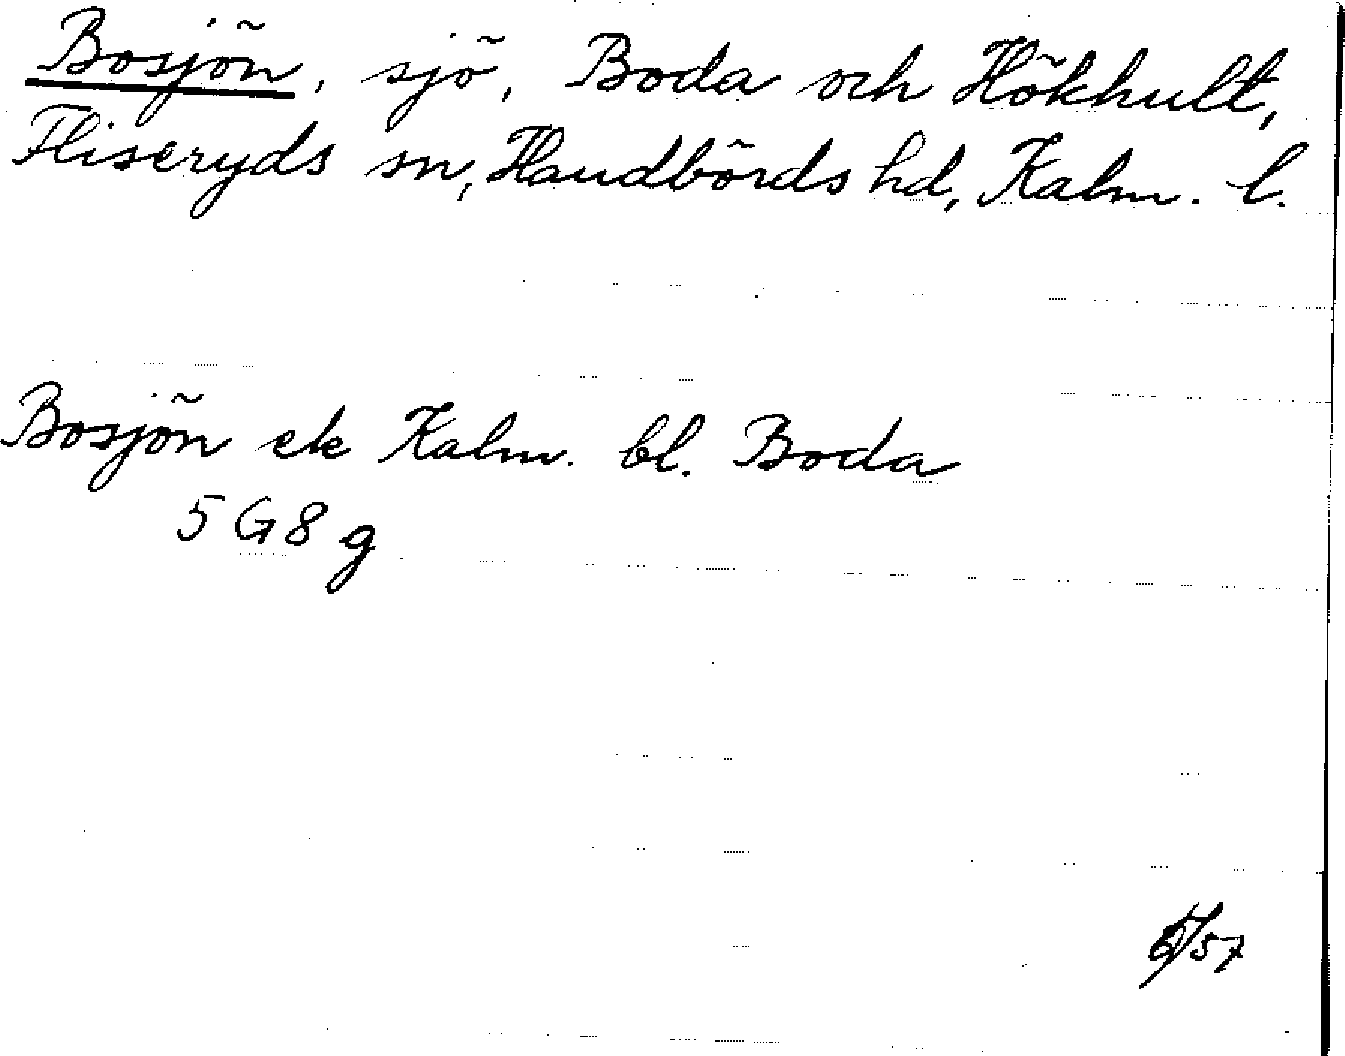 Bosjön, sjö, Boda och Hökhult,
Fliseryds sn, Handbörds hd, Kalm. l.
Bosjön ek Kalm. bl. Boda
5 G 8 g
/57